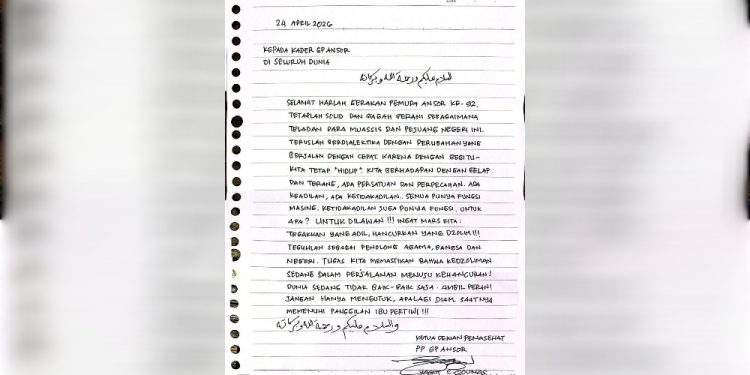 24 APRIL 2026
KEPADA KADER GP ANSOR
DI SELURUH DUNIA
السلام عليكم ورحمة الله وبركاته
SELAMAT HARLAH GERAKAN PEMUDA ANSOR KE-92.
TETAPLAH SOLID DAN GAGAH BERANI SEBAGAIMANA
TELADAN PARA MUASSIS DAN PEJUANG NEGERI INI.
TERUSLAH BERDIALEKTIKA DENGAN PERUBAHAN YANG
BERJALAN DENGAN CEPAT. KARENA DENGAN BEGITU-
KITA TETAP "HIDUP". KITA BERHADAPAN DENGAN GELAP
DAN TERANG, ADA PERSATUAN DAN PERPECAHAN. ADA
KEADILAN, ADA KETIDAKADILAN. SEMUA PUNYA FUNGSI
MASING. KETIDAKADILAN JUGA PUNYA FUNGSI. UNTUK
APA? UNTUK DILAWAN!!! INGAT MARS KITA:
TEGAKKAN YANG ADIL, HANCURKAN YANG DZOLIM!!!
TEGUHLAH SEBAGAI PENOLONG AGAMA, BANGSA DAN
NEGERI. TUGAS KITA MEMASTIKAN BAHWA KEDZOLIMAN
SEDANG DALAM PERJALANAN MENUJU KEHANCURAN!
DUNIA SEDANG TIDAK BAIK-BAIK SAJA. AMBIL PERAN!
JANGAN HANYA MENGUTUK, APALAGI DIAM. SAATNYA
MEMENUHI PANGGILAN IBU PERTIWI!!!
والسلام عليكم ورحمة الله وبركاته
KETUA DEWAN PENASEHAT
PP GP ANSOR